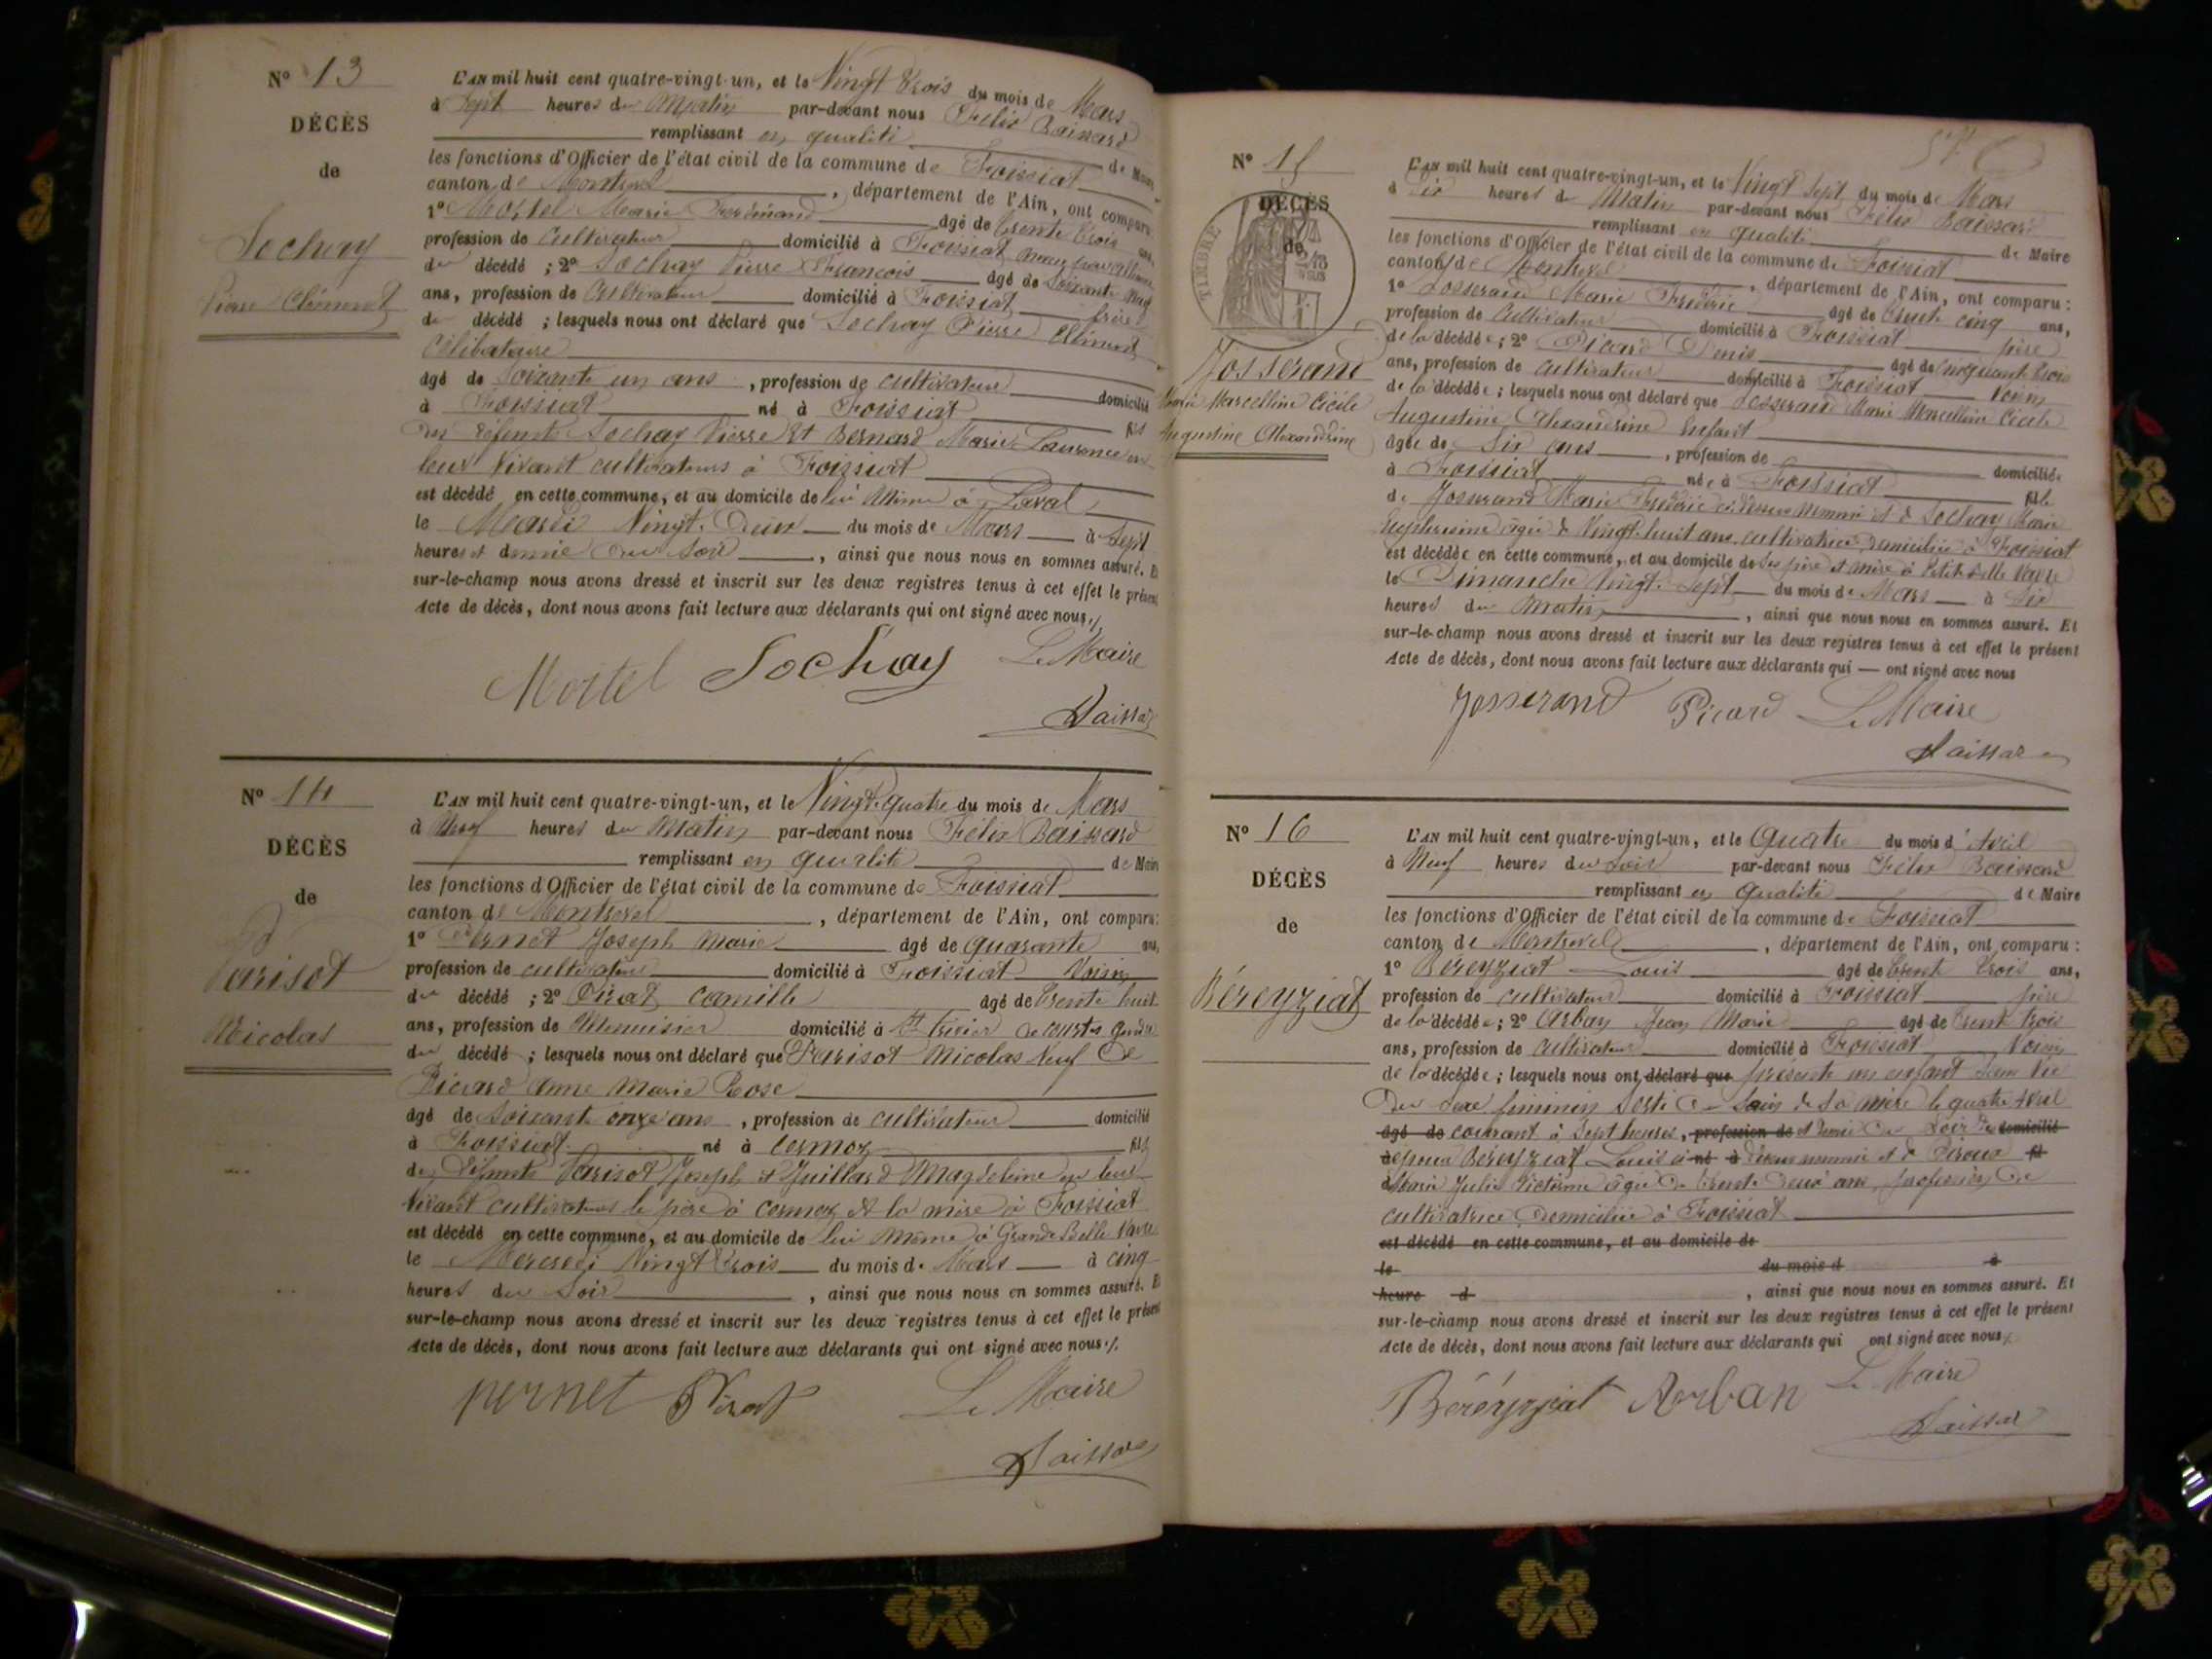 N° 13
DÉCÈS
de
Sochay
Pierre Clément
L'AN mil huit cent quatre-vingt-un, et le Vingt trois du mois de Mars
à Sept heures du Matin par-devant nous Félix Baissard
remplissant en qualité de Maire
les fonctions d'Officier de l'état civil de la commune de Foissiat
canton de Montrevel, département de l'Ain, ont comparu
1° Mortel Marie Ferdinand âgé de trente trois ans,
profession de Cultivateur domicilié à Foissiat
du décédé ; 2° Sochay Pierre François âgé de Soixante
ans, profession de Cultivateur domicilié à Foissiat frère
du décédé ; lesquels nous ont déclaré que Sochay Pierre Clément
Célibataire
âgé de Soixante un ans, profession de cultivateur domicilié
à Foissiat né à Foissiat fils
des défunts Sochay Pierre et Bernard Marie Laurence en
leur vivant cultivateurs à Foissiat
est décédé en cette commune, et au domicile de lui même à Laval
le Mardi Vingt Deux du mois de Mars à Sept
heures et demie du soir, ainsi que nous nous en sommes assuré. Et
sur-le-champ nous avons dressé et inscrit sur les deux registres tenus à cet effet le présent
Acte de décès, dont nous avons fait lecture aux déclarants qui ont signé avec nous./.
Mortel Sochay Le Maire
Baissard
N° 14
DÉCÈS
de
Parisot
Nicolas
L'AN mil huit cent quatre-vingt-un, et le Vingt quatre du mois de Mars
à Neuf heures du Matin par-devant nous Félix Baissard
remplissant en qualité de Maire
les fonctions d'Officier de l'état civil de la commune de Foissiat
canton de Montrevel, département de l'Ain, ont comparu:
1° Pernet Joseph Marie âgé de quarante ans,
profession de cultivateur domicilié à Foissiat Voisin
du décédé ; 2° Pirat Camille âgé de trente huit
ans, profession de Menuisier domicilié à St Trivier de Courtes gendre
du décédé ; lesquels nous ont déclaré que Parisot Nicolas Veuf de
Picard Anne Marie Rose
âgé de soixante onze ans, profession de cultivateur domicilié
à Foissiat né à Cormoz fils
des défunts Parisot Joseph et Juillard Magdeleine en leur
vivant cultivateurs le père à Cormoz et la mère à Foissiat
est décédé en cette commune, et au domicile de lui même à Grande Belle Vavre
le Mercredi Vingt trois du mois de Mars à cinq
heures du Soir, ainsi que nous nous en sommes assuré. Et
sur-le-champ nous avons dressé et inscrit sur les deux registres tenus à cet effet le présent
Acte de décès, dont nous avons fait lecture aux déclarants qui ont signé avec nous./.
pernet Pirat Le Maire
Baissard
N° 15
DÉCÈS
de
TIMBRE
Josserand
Marie Marcelline Cécile
Augustine Alexandrine
L'AN mil huit cent quatre-vingt-un, et le Vingt Sept du mois de Mars
à Dix heures du Matin par-devant nous Félix Baissard
remplissant en qualité de Maire
les fonctions d'Officier de l'état civil de la commune de Foissiat
canton de Montrevel, département de l'Ain, ont comparu :
1° Josserand Marie Frédéric âgé de trente cinq ans,
profession de Cultivateur domicilié à Foissiat père
de la décédée ; 2° Picard Denis âgé de cinquante trois
ans, profession de cultivateur domicilié à Foissiat Voisin
de la décédée ; lesquels nous ont déclaré que Josserand Marie Marcelline Cécile
Augustine Alexandrine Enfant
âgée de Six ans, profession de domiciliée
à Foissiat née à Foissiat fille
de Josserand Marie Frédéric ci-dessus nommé et de Sochay Marie
Euphrosine âgée de Vingt huit ans cultivatrice domiciliée à Foissiat
est décédée en cette commune, et au domicile de ses père et mère à Petite Belle Vavre
le Dimanche Vingt Sept du mois de Mars à Six
heures du Matin, ainsi que nous nous en sommes assuré. Et
sur-le-champ nous avons dressé et inscrit sur les deux registres tenus à cet effet le présent
Acte de décès, dont nous avons fait lecture aux déclarants qui — ont signé avec nous
Josserand Picard Le Maire
Baissard
N° 16
DÉCÈS
de
Béreyziat
L'AN mil huit cent quatre-vingt-un, et le Quatre du mois d'Avril
à Neuf heures du soir par-devant nous Félix Baissard
remplissant en qualité de Maire
les fonctions d'Officier de l'état civil de la commune de Foissiat
canton de Montrevel, département de l'Ain, ont comparu :
1° Béreyziat Louis âgé de trente trois ans,
profession de cultivateur domicilié à Foissiat père
de la décédée ; 2° Arban Jean Marie âgé de trente trois
ans, profession de cultivateur domicilié à Foissiat Voisin
de la décédée ; lesquels nous ont déclaré que présenté un enfant sans vie
Du sexe féminin sorti du sein de sa mère le quatre Avril
âgé de courant à Sept heures, profession de et demie du soir de domicilié
à époux Béreyziat Louis ci né à dessus nommé et de Piroux fil
d Marie Julie Victorine âgée de trente deux ans, profession de
cultivatrice domiciliée à Foissiat
est décédé en cette commune, et au domicile de
le du mois d à
heure d, ainsi que nous nous en sommes assuré. Et
sur-le-champ nous avons dressé et inscrit sur les deux registres tenus à cet effet le présent
Acte de décès, dont nous avons fait lecture aux déclarants qui ont signé avec nous./.
Béréyziat Arban Le Maire
Baissard